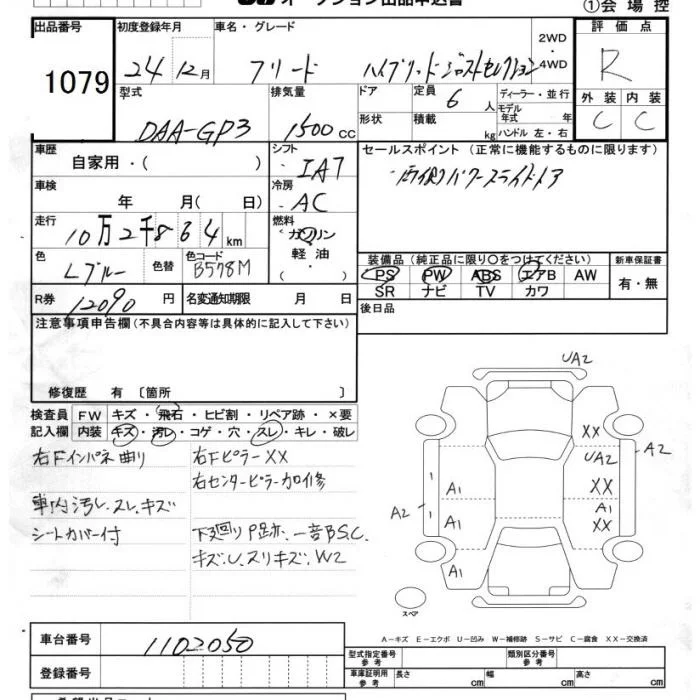 オークション出品申込書
①会場控
出品番号 初度登録年月 車名・グレード 評価点
1079
24年12月 フリード ハイブリッドジャストセレクション 2WD・4WD
R
型式 排気量 ドア 定員 6人 ディーラー・並行 外装 内装
DAA-GP3 1500cc 形状 積載 kg モデル年式 年 ハンドル 左・右 C C
車歴 シフト セールスポイント（正常に機能するものに限ります）
自家用・（ ） IA7
車検 冷房
年 月（ 日） AC
走行 燃料
10万2千864km ガソリン・軽油・（ ）
色 色替 色コード 装備品（純正品に限り○をつけてください） 新車保証書
Lブルー B578M PS PW ABS エアB AW 有・無
SR ナビ TV カワ
R券 12090円 名変通知期限 月 日 後日品
注意事項申告欄（不具合内容等は具体的に記入して下さい）
修復歴 有〔箇所 〕
検査員記入欄 FW キズ・飛石・ヒビ割・リペア跡・×要
内装 キズ・汚レ・コゲ・穴・スレ・キレ・破レ
右Fインパネ曲り 右FピラーXX
右センターピラー加修
車内汚レ、スレ、キズ
シートカバー付 下廻りP足赤、一部B.S.C.
キズ、U、スリキズ、W2
UA2
XX
UA2
A2
XX
A1
A1
XX
A2
A1
A1
スペア
A－キズ E－エクボ U－凹み W－補修跡 S－サビ C－腐食 XX－交換済
車台番号 1102050
型式指定番号 参考 類別区分番号 参考
登録番号 車庫証明用 参考 長さ cm 幅 cm 高さ cm